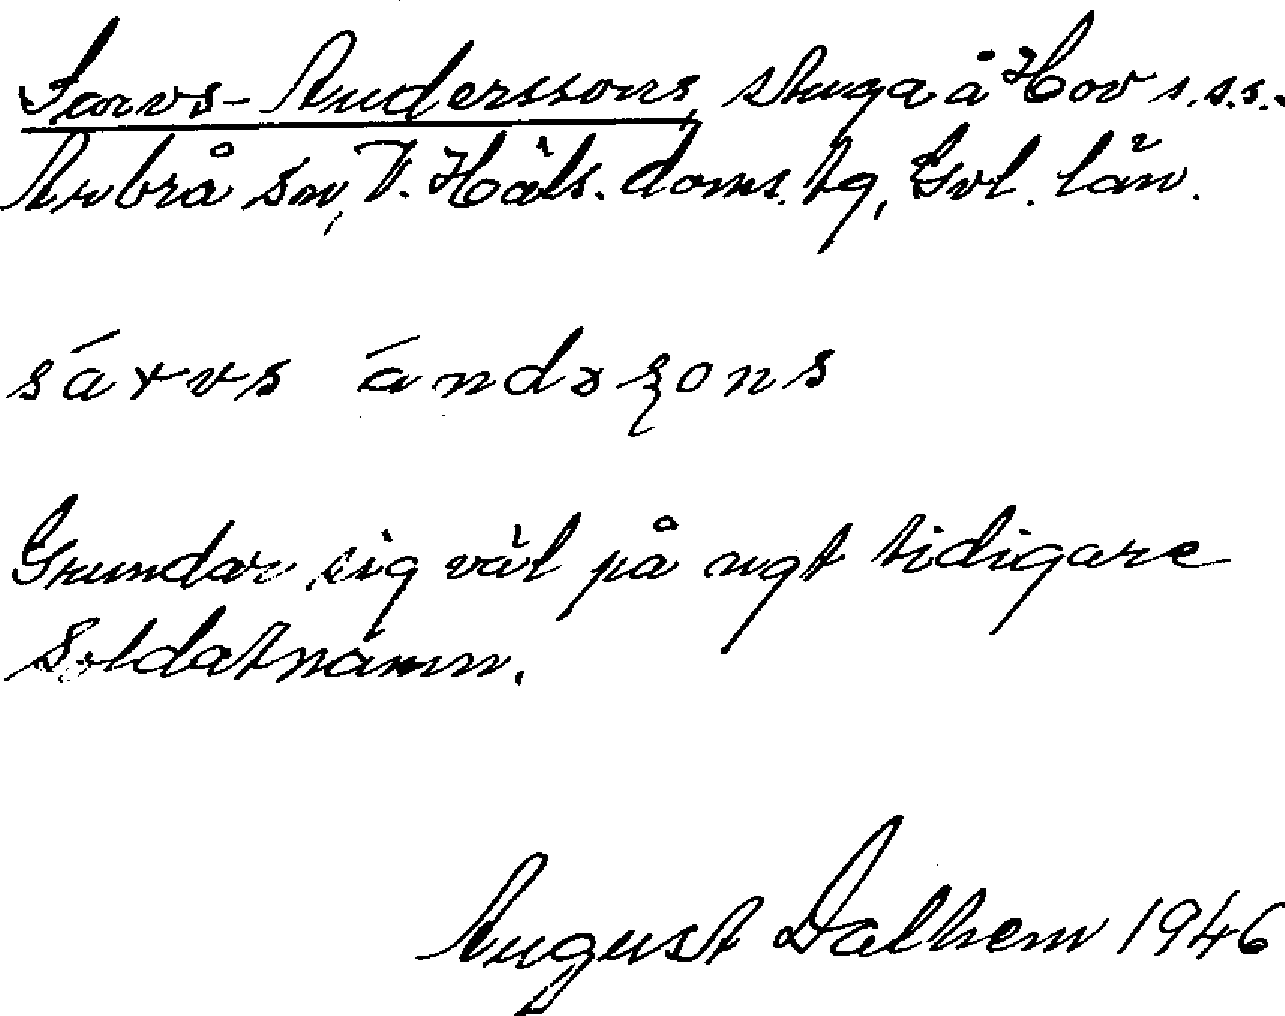 Sarvs-Anderssons, stuga å Hov s.s.s.
Arbrå sn, V. Häls. doms. tg, Gvl. län.
sárvs ándəʂons
Grundar sig väl på ngt tidigare
soldatnamn.
August Dalhem 1946